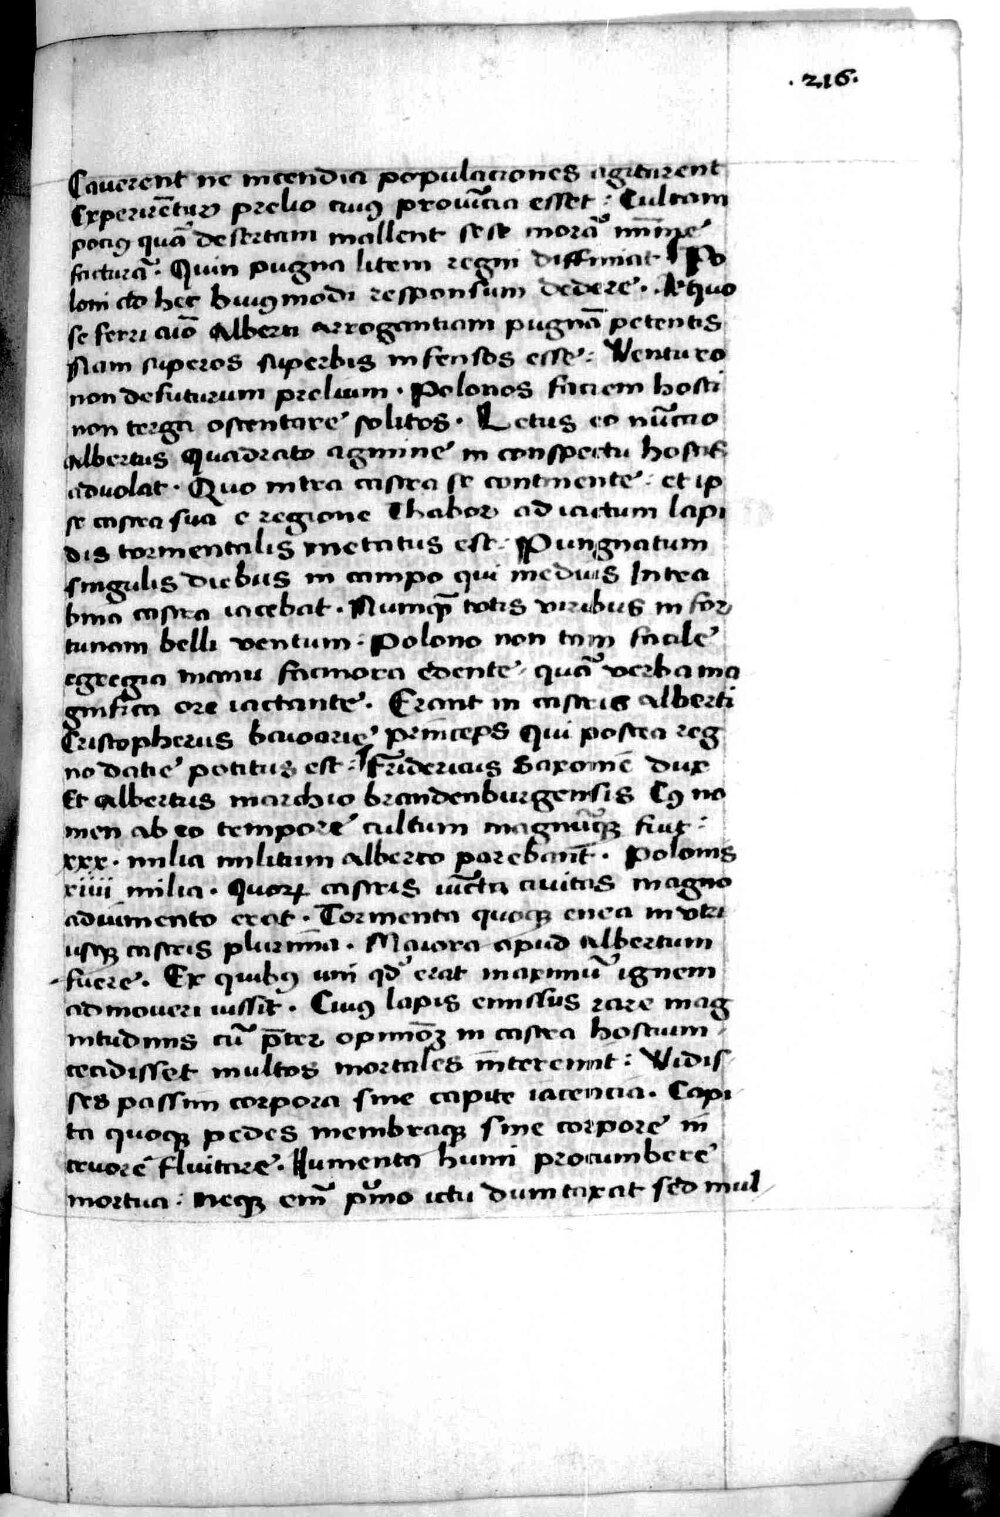 .216.
Caverent ne incendia populaciones agitarent
Experirẽtur prelio cuiꝰ prouĩcia esset : Cultam
pociꝰ quã desertam mallent sese morã mĩme
facturã . Quin pugna litem regni diffiniat Po
loni ad hec huiusmodi responsum dedere . Aequo
se ferri aĩo Alberti arrogantiam pugnã petentis
Nam superos superbis infensos esse : Venturo
non defuturum prelium . Polonos faciem hosti
non terga ostentare solitos . Letus eo nũcio
Albertus Quadrato agmine in conspectu hostis
advolat . Quo intra castra se continente : et ip
se castra sua e regione Thabor ad iactum lapi
dis tormentalis metatus est : Pungnatum
singulis diebus in campo qui medius Intra
bina castra iacebat . Numqꝫ totis viribus in for
tunam belli ventum : Polono non tam facile
egregia manu facinora edente quã verba ma
gnifica ore iactante . Erant in castris Alberti
Cristopherus bavarie princeps Qui postea reg
no datie potitus est : Fridericus Saxonie dux
Et Albertus marchio brandenburgensis Cꝰ no
men ab eo tempore cultum magnũqꝫ fuit :
xxx . milia militum Alberto parebant . Polonis
xiiii milia . Quorꝝ castris iũcta civitas magno
adiumento erat . Tormenta quoqꝫ enea in vtri
usqꝫ castris plurima . Maiora apud Albertum
fuere . Ex quibꝰ uni qd erat maximũ ignem
admoveri iussit . Cuiꝰ lapis emissus rare mag
nitudinis cũ p̃ter opinioẽ in castra hostium
cecidisset multos mortales interemit : Vidis
ses passim corpora sine capite iacencia . Capi
ta quoqꝫ pedes membraqꝫ sine corpore in
cruore fluitare . Iumenta humi procumbere
mortua : neqꝫ em̃ pᵒmo ictu dumtaxat sed mul